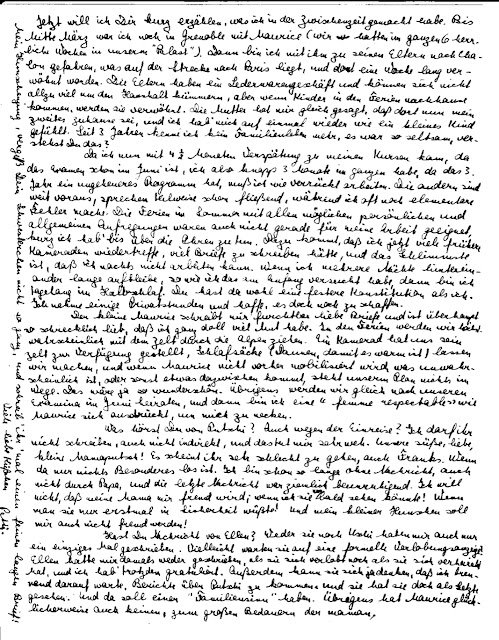 Jetzt will ich Dir kurz erzählen, was ich in der Zwischenzeit gemacht habe. Bis
Mitte März war ich noch in Grenoble mit Maurice (wir hatten im ganzen 6 herr-
liche Wochen in unserm "Palast"). Dann bin ich mit ihm zu seinen Eltern nach Cha-
lon gefahren, was auf der Strecke nach Paris liegt, und dort eine Woche lang ver-
wöhnt worden. Die Eltern haben ein Lederwarengeschäft und können sich nicht
allzu viel um den Haushalt kümmern, aber wenn Kinder in den Ferien nachhause
kommen, werden sie verwöhnt. Die Mutter hat mir gleich gesagt, daß dort nun mein
zweites zuhause sei, und ich hab mich auf einmal wieder wie ein kleines Kind
gefühlt. Seit 3 Jahren kenne ich kein Familienleben mehr, es war so seltsam, ver-
stehst Du das?
Da ich nun mit 4½ Monaten Verspätung zu meinen Kursen kam, da
das Examen schon im Juni ist, ich also knapp 3 Monate im ganzen habe, da das 3.
Jahr ein ungeheures Programm hat, muß ich wie verrückt arbeiten. Die andern sind
weit voraus, sprechen teilweise schon fließend, während ich oft noch elementare
Fehler mache. Die Ferien im Sommer mit allen möglichen persönlichen und
allgemeinen Aufregungen waren auch nicht gerade für meine Arbeit geeignet,
kurz ich hab' bis über die Ohren zu tun. Dazu kommt, daß ich jetzt viel früheren
Kameraden wiedertreffe, viel Briefe zu schreiben hätte, und das Schlimmste
ist, daß ich nachts nicht arbeiten kann. Wenn ich mehrere Nächte hinterein-
ander lange aufbleibe, so wie ich das im Anfang versucht habe, dann bin ich
tagelang im Halbschlaf. Du hast da wohl eine festere Konstitution als ich.
Ich nehme einige Privatstunden und hoffe, es doch noch zu schaffen.
Der kleine Maurice schreibt mir furchtbar liebe Briefe und ist überhaupt
so schrecklich lieb, daß ich ganz doll viel Mut habe. In den Ferien werden wir höchst-
wahrscheinlich mit dem Zelt durch die Alpen ziehen. Ein Kamerad hat uns sein
Zelt zur Verfügung gestellt, Schlafsäcke (Daunen, damit es warm ist) lassen
wir machen, und wenn Maurice nicht vorher mobilisiert wird was unwahr-
scheinlich ist, oder sonst etwas dazwischen kommt, steht unserem Plan nichts im
Wege. Das wäre ja so wunderschön. Übrigens werden wir gleich nach unserem
Examina im Juni heiraten, und dann bin ich eine "femme respectable" wie
Maurice sich ausdrückt, um mich zu necken.
Was hörst Du von Putschi? Auch wegen der Einreise? Ich darf ihr
nicht schreiben, auch nicht indirekt, und das tut mir sehr weh. Unsere süße, liebe,
kleine! Es scheint ihr sehr schlecht zu gehen, auch Franks. Wenn
da nur nichts Besonderes los ist. Ich bin schon so lange ohne Nachricht, auch
nicht durch Papa, und die letzte Nachricht war ziemlich beunruhigend. Ich will
nicht, daß meine Mama mir fremd wird; wenn ich sie bald sehen könnte! Wenn
man sie nur erstmal in Sicherheit wüßte! Und mein kleiner Hunschen soll
mir auch nicht fremd werden!
Hast Du Nachricht von Ellen? Weder sie noch Uschi haben mir auch nur
ein einziges Mal geschrieben. Vielleicht warten sie auf eine formelle Verlobungsanzeige.
Ellen hatte mir damals weder geschrieben, als sie sich verlobt noch als sie sich verheiratet
hat, und ich hab' trotzdem gratuliert. Außerdem kann sie sich ja denken, daß ich bren-
nend darauf warte, Berichte über Putschi zu kommen, und sie hat sie doch als Letzte
gesehen. Und da soll einen "Familiensinn" haben. Übrigens hat Maurice glück-
licherweise auch keinen, zum großen Bedauern der maman.
vergiß Dein Schwesterchen nicht so ganz, und schreib ihr 'mal einen feinen langen Brief!
Dich liebt